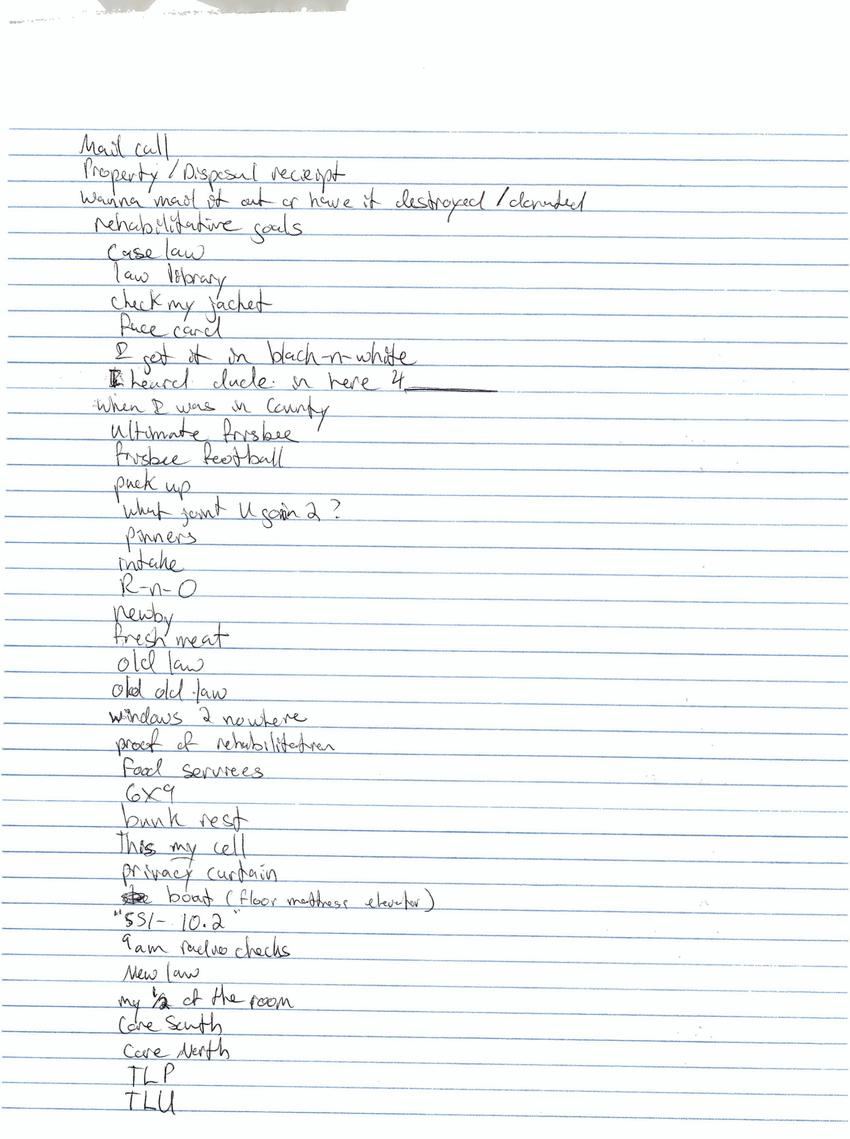 Mail call
Property / Disposal receipt
Wanna mail it out or have it destroyed / donated
rehabilitative goals
case law
law library
check my jacket
Face card
I got it in black-n-white
I heard dude in here 4________
When I was in County
Ultimate frisbee
frisbee football
pack up
what joint U goin 2 ?
pinners
intake
R-n-O
newby
fresh meat
old law
old old law
windows 2 nowhere
proof of rehabilitation
food services
6x9
bunk rest
this my cell
privacy curtain
boat (floor mattress elevator)
"SSI- 10.2"
9am radio checks
New law
my 1/2 of the room
Core South
Core North
TLP
TLU